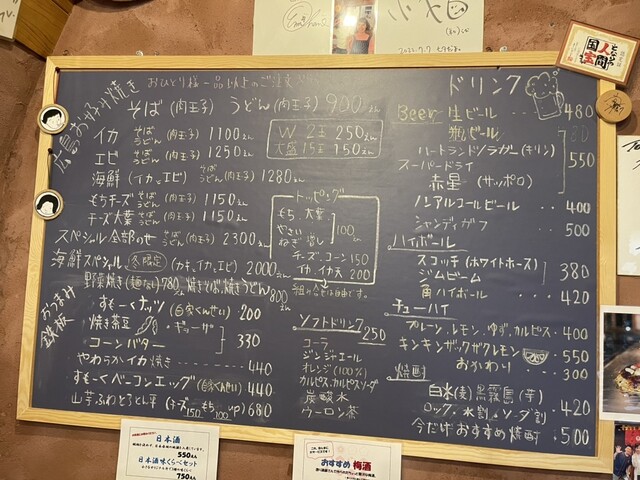 広島お好み焼き
おひとり様一品以上のご注文
そば(肉玉子) うどん(肉玉子) 900えん
イカ そば うどん (肉玉子) 1100えん
エビ そば うどん (肉玉子) 1250えん
海鮮 (イカ、エビ) そば うどん (肉玉子) 1280えん
もちチーズ そば うどん (肉玉子) 1150えん
チーズ大葉 そば うどん (肉玉子) 1150えん
スペシャル全部のせ そば うどん (肉玉子) 2300えん
海鮮スペシャル 冬限定 (カキ、イカ、エビ) 2000えん
野菜焼き(麺なし) 780えん 焼きそば・焼きうどん 800えん
W 2玉 250えん
大盛 1.5玉 150えん
トッピング
もち、大葉
やさい
ねぎ 増し 100えん
チーズ、コーン 150
イカ、イカ天 200
組み合せは自由です。
おつまみ
鉄板
・すもーくナッツ (自家くんせい) 200
・焼き茶豆 ・ギョーザ
・コーンバター 330
・やわらかイカ焼き 440
・すもーくベーコンエッグ (自家くんせい) 440
・山芋ふわとろとん平 (チーズ150 もち200 UP) 680
ソフトドリンク 250
コーラ
ジンジャエール
オレンジ (100%)
カルピス、カルピスソーダ
炭酸水
ウーロン茶
ドリンク
Beer 生ビール 480
瓶ビール
ハートランド/ラガー(キリン)
スーパードライ 550
赤星 (サッポロ)
ノンアルコールビール 400
シャンディガフ 500
ハイボール
スコッチ(ホワイトホース)
ジムビーム 380
角ハイボール 420
チューハイ
プレーン、レモン、ゆず、カルピス 400
キンキンザックザクレモン 550
おかわり 300
焼酎
白米(麦) 黒霧島(芋)
ロック、水割、ソーダ割 420
今だけおすすめ焼酎 500
日本酒
550えん
日本酒味くらべセット
750えん
おすすめ 梅酒
人間国宝